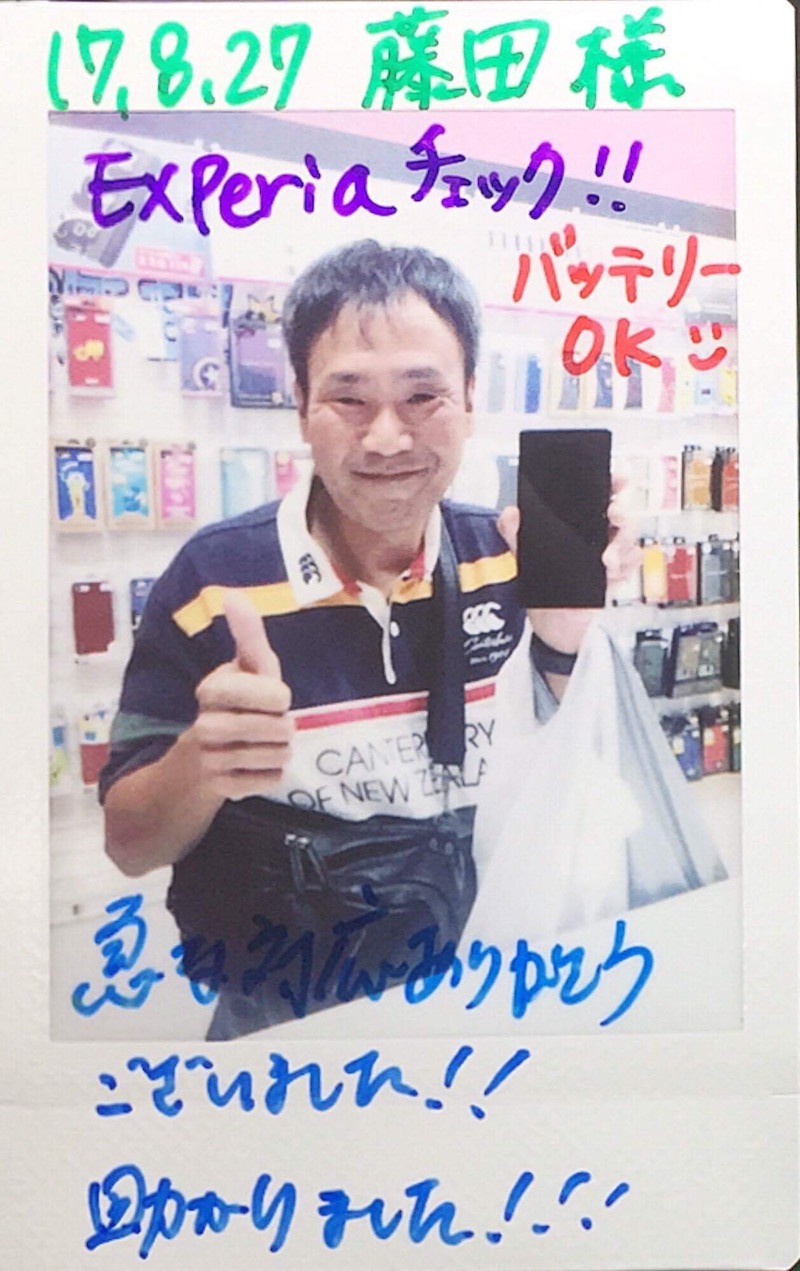 17.8.27 藤田 様
Experia チェック!!
バッテリー
OK
CANTERBURY
OF NEW ZEALA
急な対応ありがとう
ございました!!
助かりました!!!